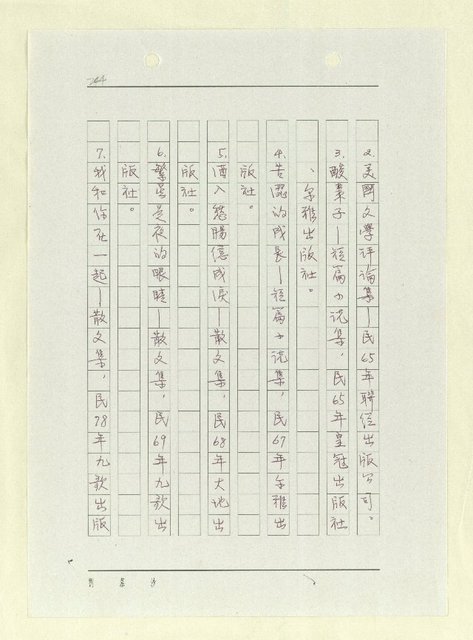 244
2.美國文學评論集—民65年聯經出版公司。
3.酸棗子—短篇小说集，民65年皇冠出版社
、尔雅出版社。
4.苦澀的成長—短篇小说集，民67年尔雅出
版社。
5.酒入愁腸總成淚—散文集，民68年大地出
版社。
6.繁星是夜的眼睛—散文集，民69年九歌出
版社。
7.我和你在一起—散文集，民78年九歌出版
劉慕沙